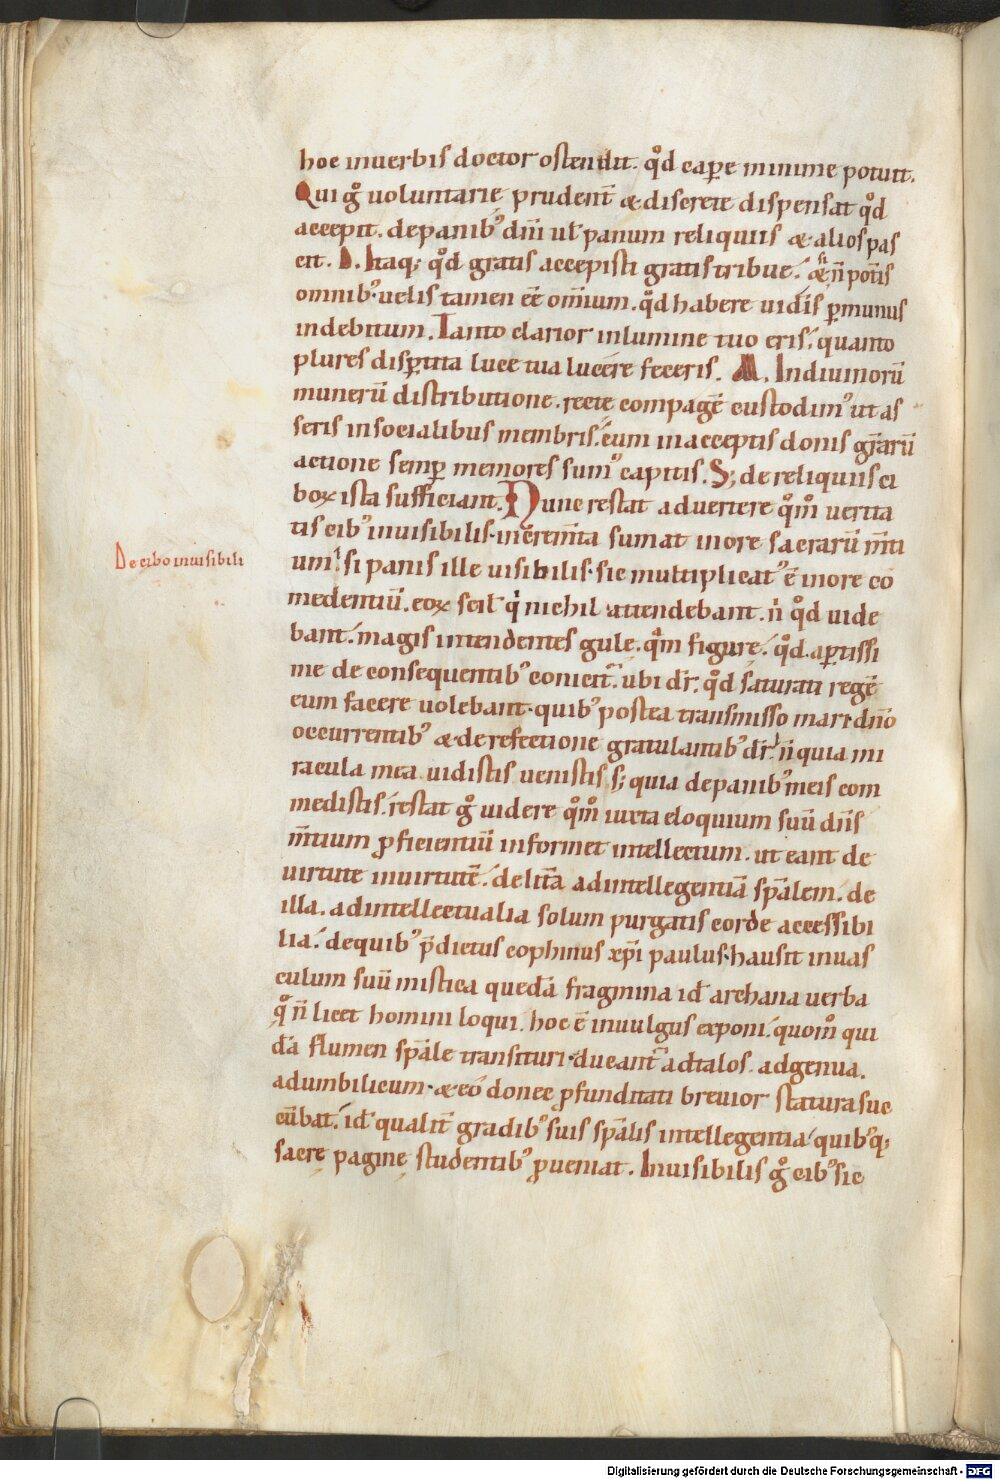 hoc in uerbis doctor ostendit. qd̊ cap̱e minime potuit.
Qui g̊ uoluntarie prudent̄ & discrete dispensat qd̊
accepit. de panib᾽ dn̄i ul̄ panum reliquiis & alios pas
cit. D. Itaq; qd̊ gratis accepisti gratis tribue. & n̄ potīs
omnib᾽ uelis tamen eē om̄ium. qd̊ habere uidīs p̱ munus
indebitum. Tanto clarior in lumine tuo eris. quanto
plures disp̱tita luce tua lucere feceris. M. In diuinorū
munerū distributione. recte compagē custodim᾽ ut as
seris in socialibus membris. cum in acceptis donis gr̄arū
actione semp̱ memores sum᾽ capitis. S; de reliquiis ci
boꝝ ista sufficiant. Nunc restat aduertere qm̊ uerita
tis cib᾽ inuisibilis. increm̄ta sumat in ore sacrarū m̄ti
um. si panis ille uisibilis. sic multiplicat᾽ ē in ore co
De cibo inuisibili
medentiū. eoꝝ scil̄ qi nichil attendebant. n̄ qd̊ uide
bant. magis intendentes gule. qm̄ figure. qd̊ ap̱tissi
me de consequentib᾽ conicit̄. ubi dr̄. qd̊ saturati regē
eum facere uolebant. quib᾽ postea transmisso mari dn̄o
occurrentib᾽ & de refectione gratulantib᾽ dr̄. n̄ quia mi
racula mea uidistis uenistis. s; quia de panib᾽ meis com
medistis. restat g̊ uidere qm̊ iuxta eloquium suū dn̄s
m̄tium ꝓficientiū informet intellectum. ut eant de
uirtute in uirtutē. de litt̄a ad intellegentiā sp̄alem. de
illa. ad intellectualia solum purgatis corde accessibi
lia. de quib᾽ p̄dictus cophinus xp̄i paulus. hausit in uas
culum suū mistica quedā fragmina id̄ archana uerba
q̊ n̄ licet homini loqui. hoc ē in uulgus exponi. quom̊ qui
dā flumen sp̄ale transituri. ducant̄ ad talos. ad genua.
ad umbilicum. & eo donec ꝓfunditati breuior statura suc
cūbat. id̄ qualit̄ gradib᾽ suis sp̄alis intellegentia quib᾽q;
sacre pagine studentib᾽ ꝓueniat. Inuisibilis g̊ cib᾽ sic
Digitalisierung gefördert durch die Deutsche Forschungsgemeinschaft - DFG